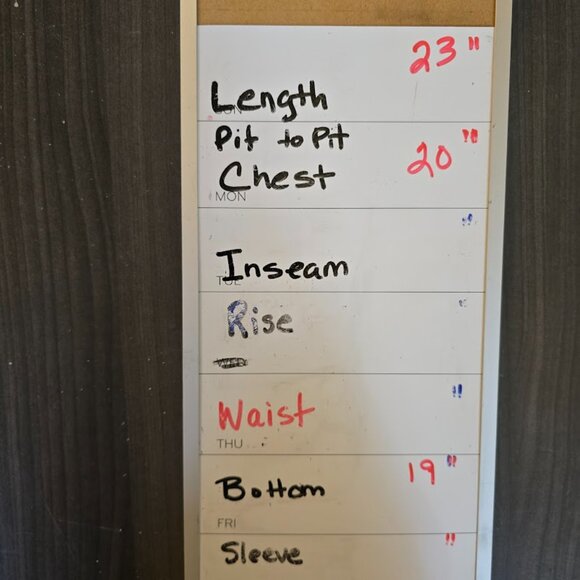 23"
Length
Pit to Pit
20"
Chest
MON
"
Inseam
"
Rise
"
Waist
THU
19"
Bottom
FRI
"
Sleeve